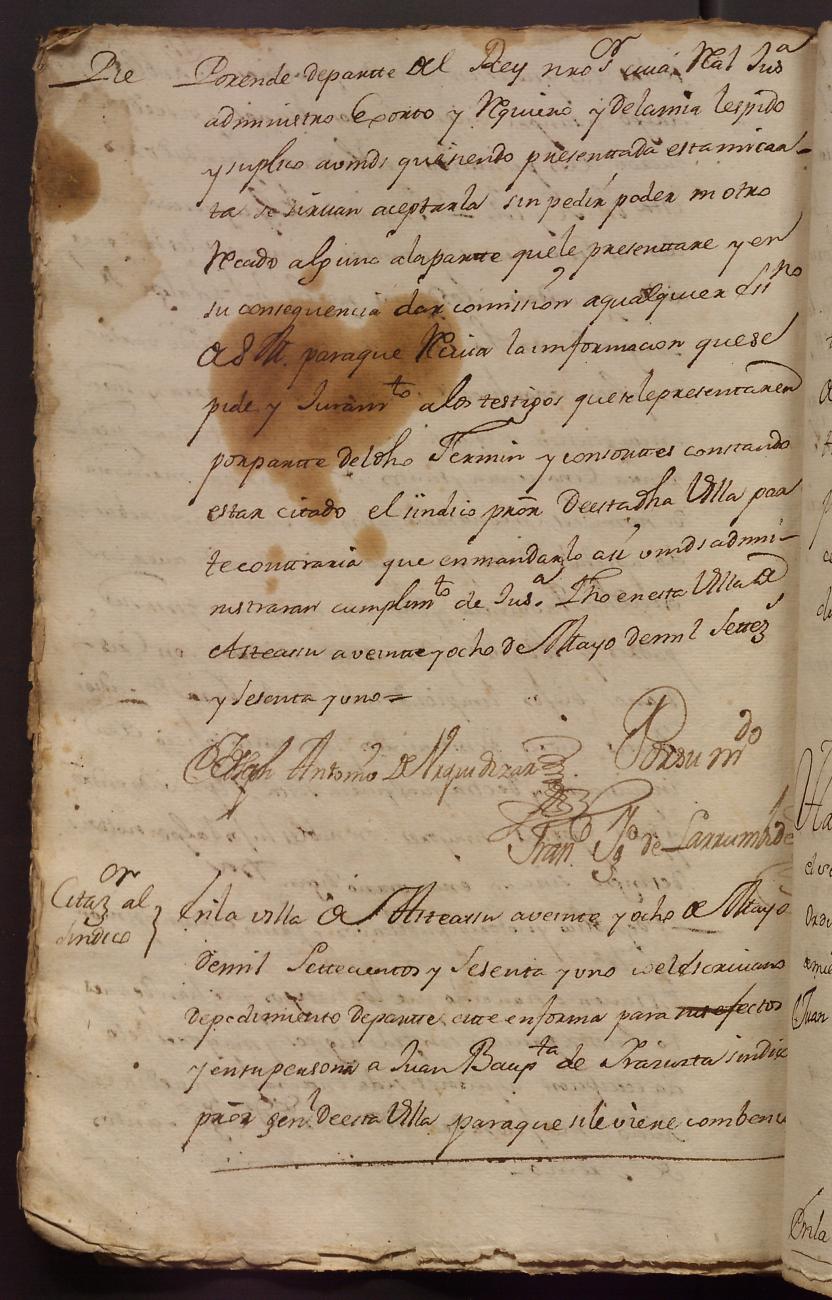 Pre
Porende departte del Rey nro sor cuia Real Jusa
administro Exorto y Requiero y Delamia les pido
y suplico avmds que siendo presenttada esta mi car-
ta se siruan aceptarla sin pedir poder ni otro
Recado alguno ala partte que le presenttare y en
su consequencia dar comission a qualquier Essno
de S M. para que Reciua la informacion que se
pide y Juramto a los testigos que se le presentaren
por partte del dho Fermin y consorttes constando
estar citado el sindico pror De esta dha Villa par
te conttraria que en mandarlo asi vmds admi-
nistraran cumplimto de Jusa. Dho en esta Villa de
Asteasu a veintte y ocho de Mayo de mil Settezs
y Sesenta y uno =
Joseph Antonio De Yzquidizar
Por su mdo
Franco Igo de Larrumbide
Citazor al
Sindico
En la villa de Asteasu a veinte y ocho de Mayo
de mil Settecientos y Sesenta y uno yo el Escriuano
de pedimiento de partte cite en forma para sus efectos
y en su persona a Juan Baupta de Yrazusta sindico
pror genl De esta Villa para que si le viene combeni